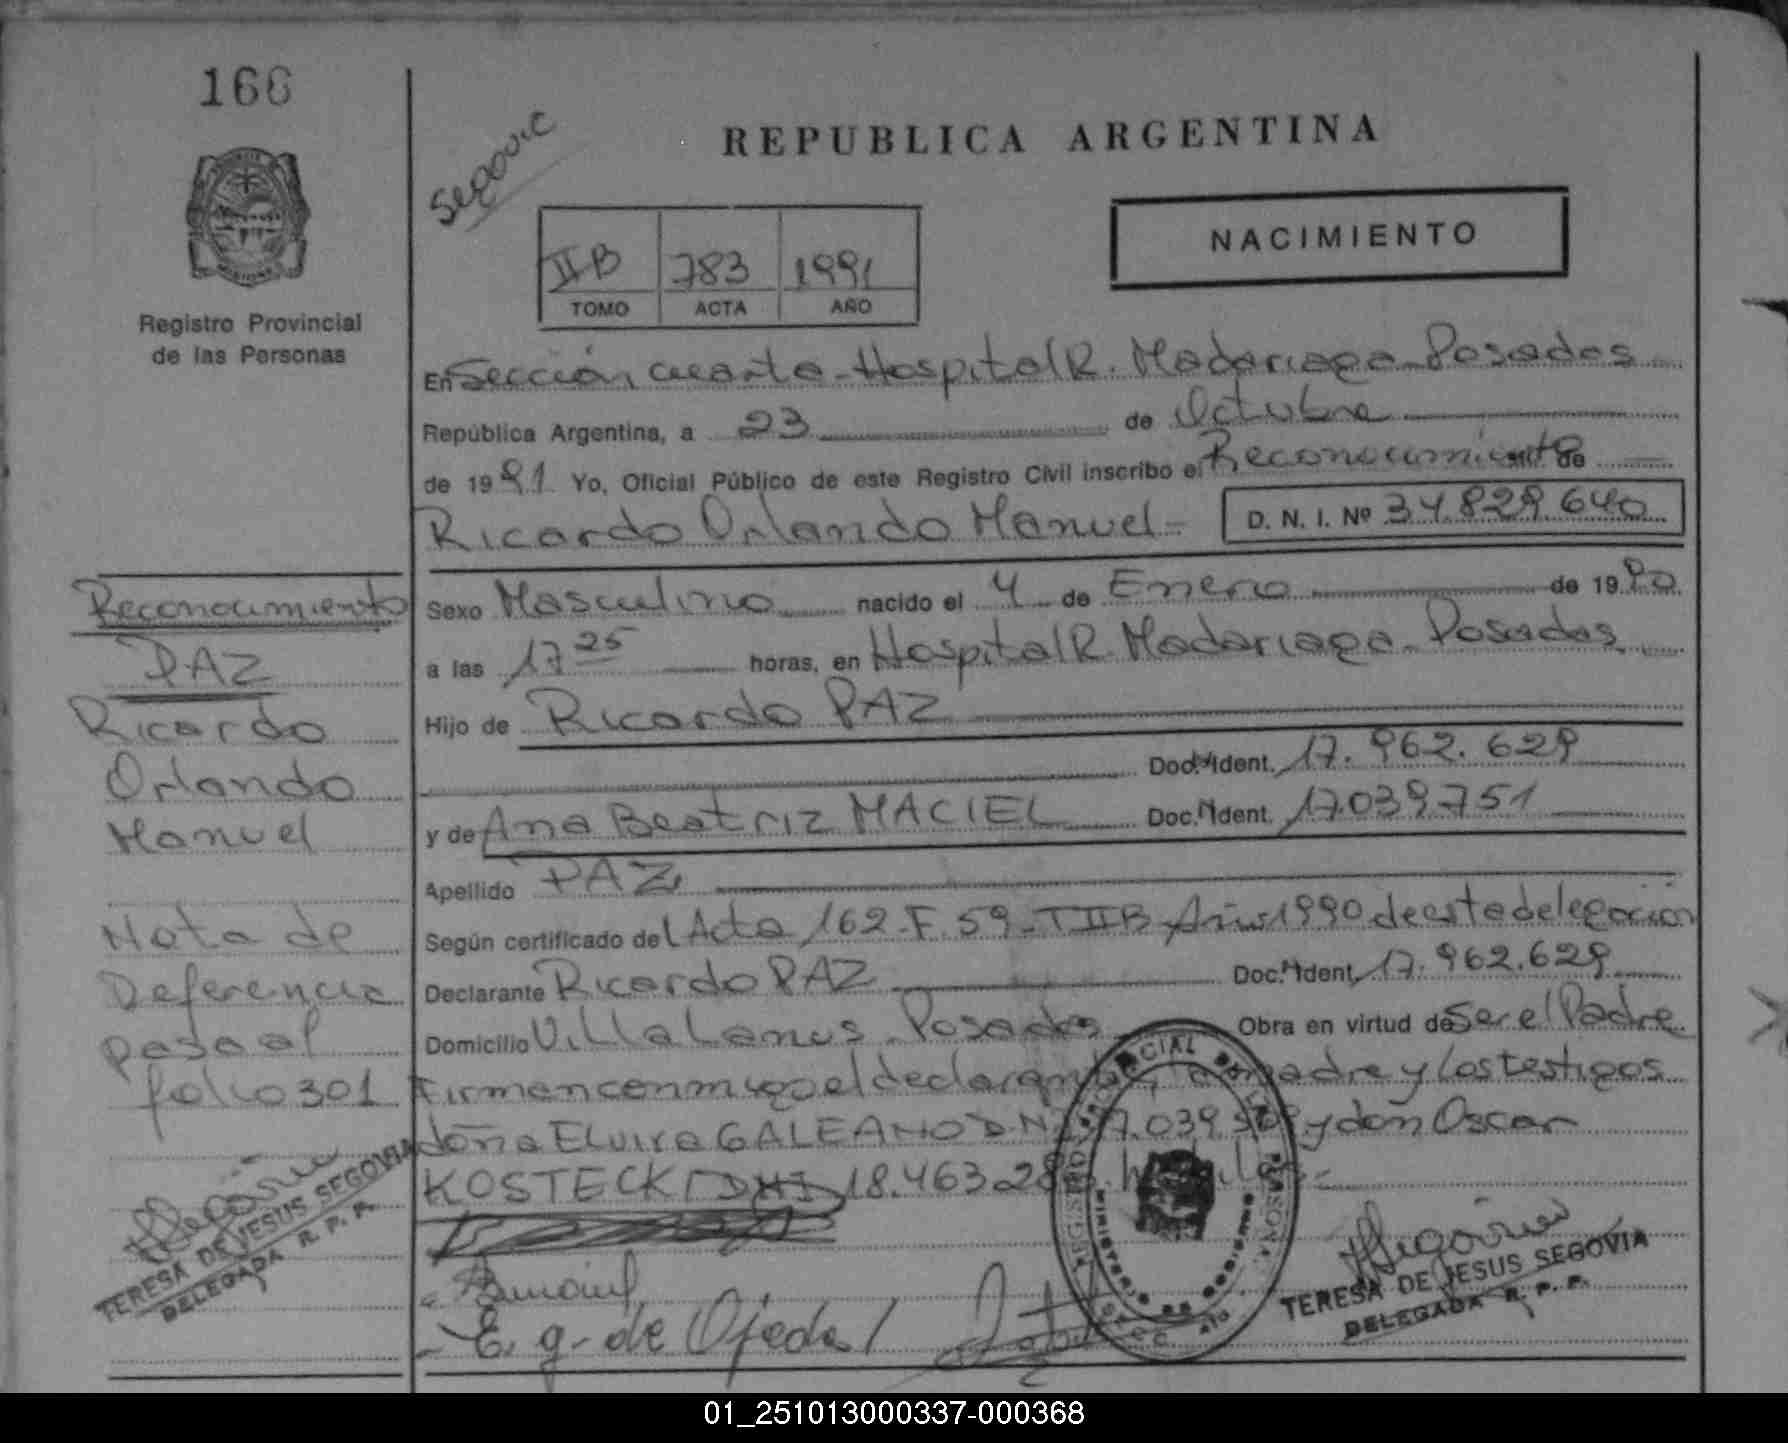 166
Registro Provincial
de las Personas
Segovia
REPUBLICA ARGENTINA
NACIMIENTO
IIB 783 1991
TOMO ACTA AÑO
En Sección cuarta - Hospital R. Madariaga - Posadas
República Argentina, a 23 de Octubre
de 1991 Yo, Oficial Público de este Registro Civil inscribo el Reconocimiento de
Ricardo Orlando Manuel - D. N. I. Nº 34.829.640
Sexo Masculino nacido el 4 de Enero de 1990
a las 17 25 horas, en Hospital R. Madariaga - Posadas
Hijo de Ricardo PAZ
Doc. Ident. 17.962.629
y de Ana Beatriz MACIEL Doc. Ident. 17.039.751
Apellido PAZ
Según certificado del Acta 162 - F. 59 - T IIB - Año 1990 de esta delegación
Declarante Ricardo PAZ Doc. Ident. 17.962.629
Domicilio Villa Lanus - Posadas Obra en virtud de Ser el Padre
Firman conmigo el declarante, la madre y los testigos
doña Elvira GALEANO D.N.I. 17.039 y don Oscar
KOSTECKI DNI 18.463.28
E. g. de Ojeda
Reconocimiento
PAZ
Ricardo
Orlando
Manuel
Nota de
Referencia
pasa al
folio 301
Segovia
TERESA DE JESUS SEGOVIA
DELEGADA R. P. P.
REGISTRO PROVINCIAL DE LAS PERSONAS
MINISTERIO DE GOBIERNO
Segovia
TERESA DE JESUS SEGOVIA
DELEGADA R. P. P.
01_251013000337-000368